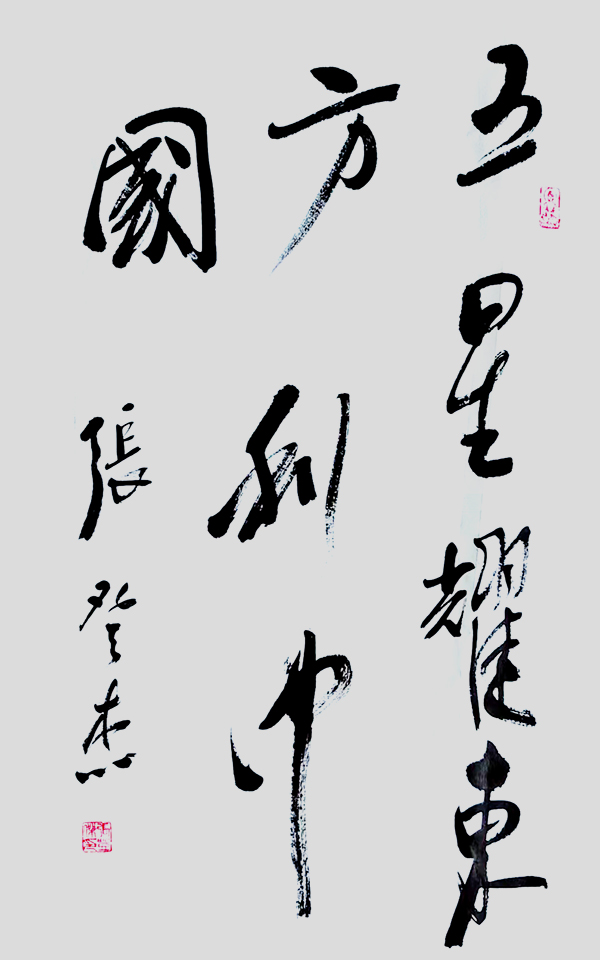 五星耀東
方利中
國
張登杰